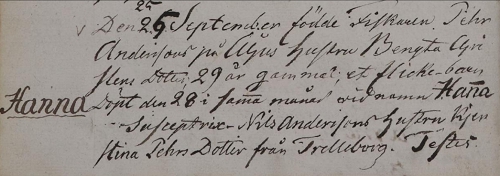 25
Den 26 September födde Fiskaren Pehr
Andersons på Ahus hustru Bengta Chri
stens Dotter 29 år gammal, et flicke-barn
Hanna döpt den 28 i sama månad vid namn Hana
Susceptrix - Nils Anderssons hustru Kjer
stina Pehrs Dotter från Trelleborg. Testes